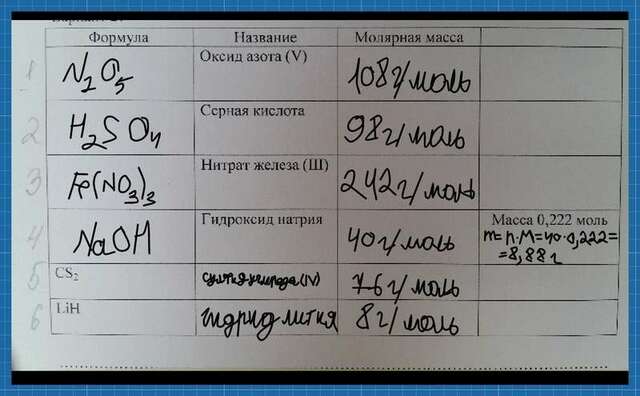 Формула Название Молярная масса
1 N2O5 Оксид азота (V) 108 г/моль
2 H2SO4 Серная кислота 98 г/моль
3 Fe(NO3)3 Нитрат железа (III) 242 г/моль
4 NaOH Гидроксид натрия 40 г/моль Масса 0,222 моль
m=n·M=40·0,222=
=8,88 г
5 CS₂ (IV) 76 г/моль
6 LiH гидрид лития 8 г/моль